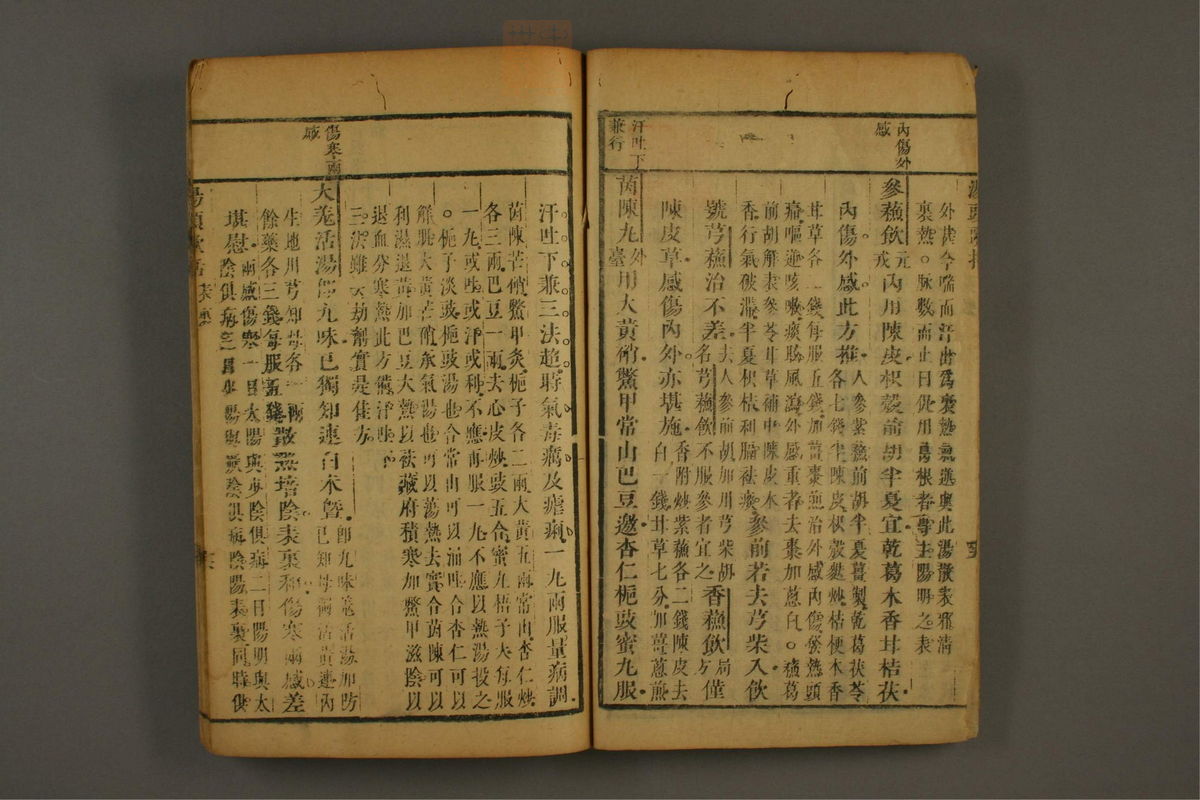 內傷外
感
外甚今喘而汗出爲裏熱氣逆與此湯散表邪清
裏熱。脉數而止曰促用葛根者專主陽明之表
參蘇飲元戎內用陳皮枳殼前胡半夏宜乾葛木香甘桔茯
內傷外感此方推人參紫蘇前胡半夏薑製乾葛茯苓
各七錢半陳皮枳殼麩炒桔梗木香
甘草各二錢每服五錢加薑棗煎治外感內傷發熱頭
痛嘔逆咳嗽痰眩風瀉外感重者去棗加葱白。蘇葛
前胡解表參苓甘草補中陳皮木
香行氣破滯半夏枳桔利膈祛痰參前若去芎柴入飲
號芎蘇治不差去人參前胡加川芎柴胡
名芎蘇飲不服參者宜之香蘇飲局方僅
陳皮草感傷內外亦堪施香附炒紫蘇各二錢陳皮去
白一錢甘草七分加薑葱煎
汗吐下
兼行
茵陳丸外臺用大黃硝鱉甲常山巴豆邀杏仁梔豉蜜丸服
汗吐下兼三法超時氣毒癘及瘧痢一丸兩服量病調
茵陳芒硝鱉甲炙梔子各二兩大黃五兩常山杏仁炒
各三兩巴豆一兩去心皮炒豉五合蜜丸梧子大每服
一丸或吐或汗或利不應再服一丸不應以熱湯投之
。梔子淡豉梔豉湯也合常山可以涌吐合杏仁可以
解肌大黃芒硝承氣湯也可以蕩熱去實合茵陳可以
利濕退黃加巴豆大熱以祛藏府積寒加鱉甲滋陰以
退血分寒熱此方備汗吐
三法雖云劫劑實是佳方
傷寒兩
感
大羌活湯即九味已獨知連白朮曁即九味羌活湯加防
已知母獨活黃連白
生地川芎知母各一兩
餘藥各三錢每服五錢散熱培陰表裏和傷寒兩感差
堪慰兩感傷寒一日太陽與少陰俱病二日陽明與太
陰俱病三日少陽與厥陰俱病陰陽表裏同時俱
湯頭歌括